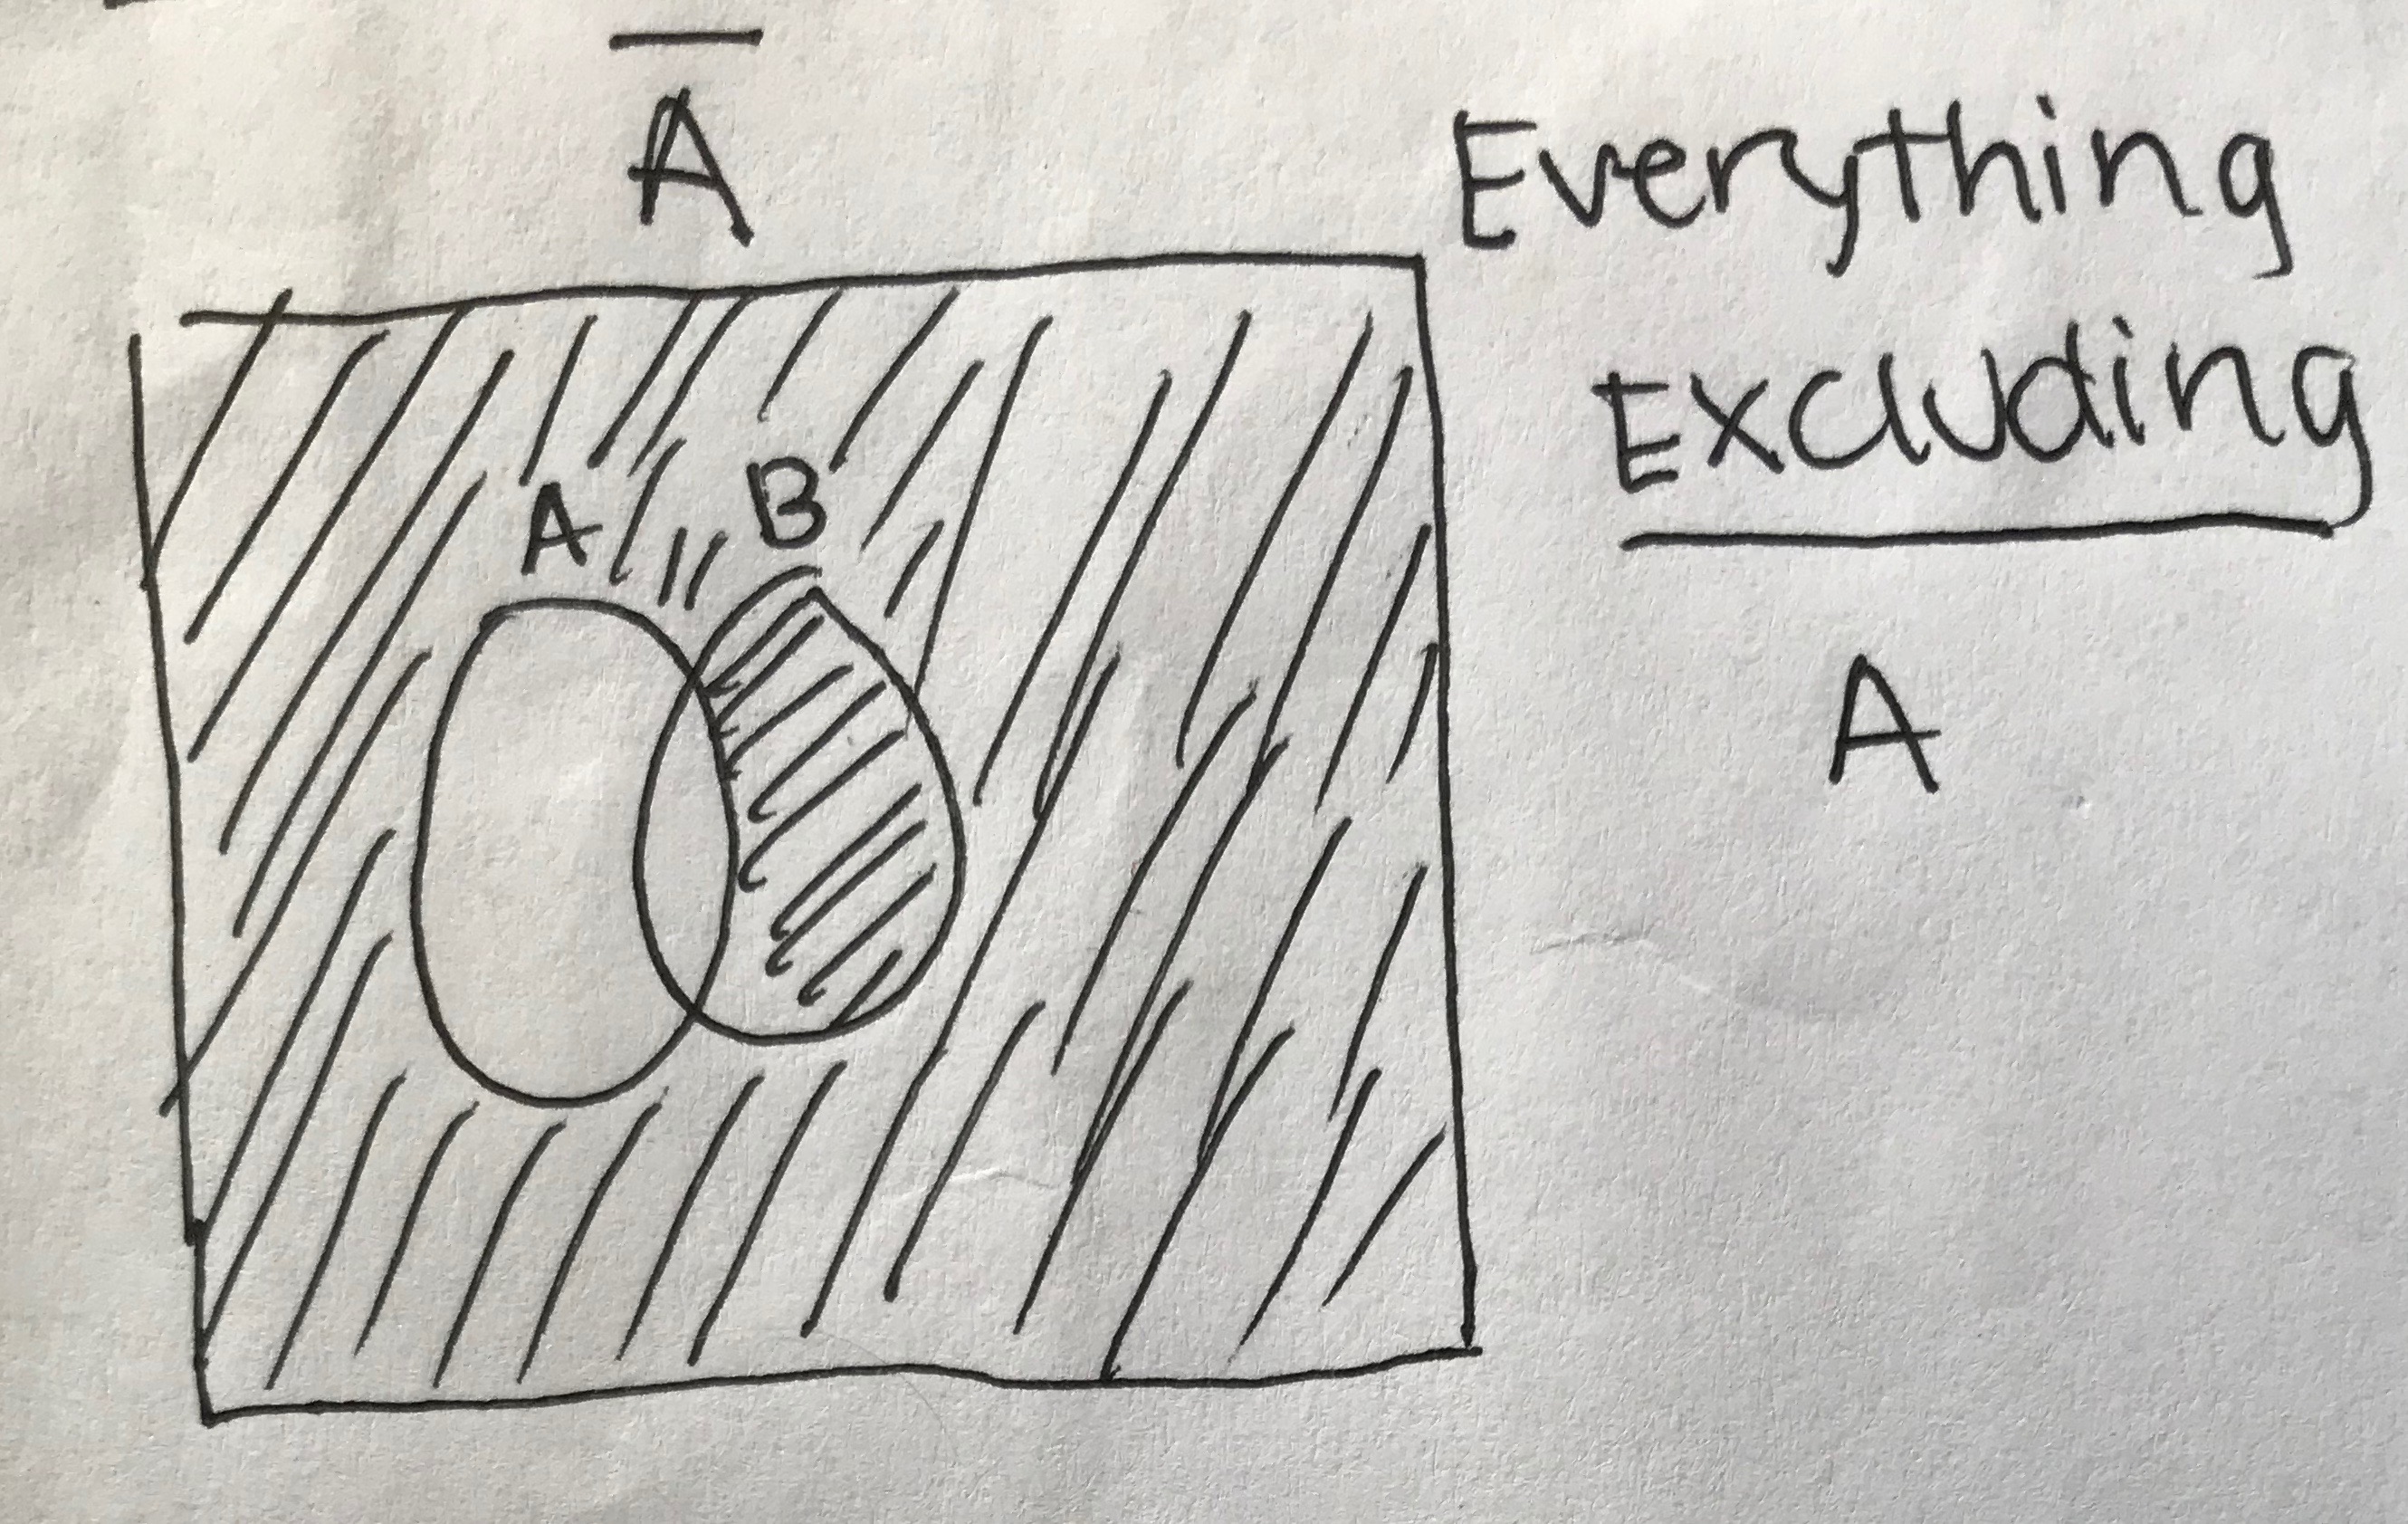 A̅
Everything
Excluding
A
A B